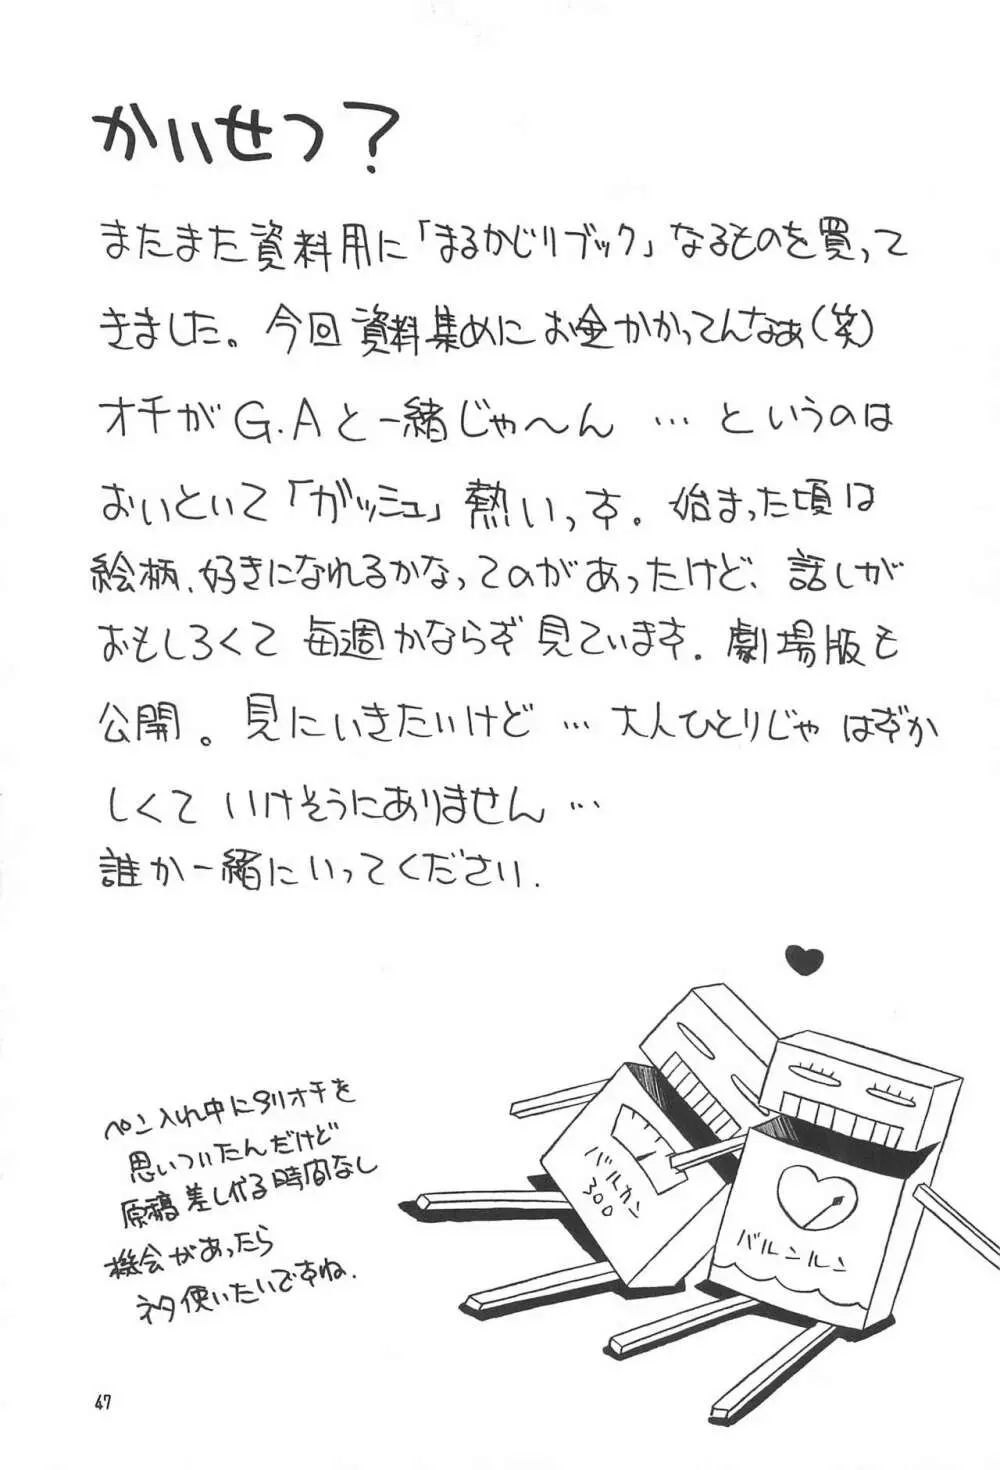 かいせつ?
またまた資料用に「まるかじりブック」なるものを買って
きました。今回資料集めにお金かかってんなぁ(笑)
オチがG.Aと一緒じゃ〜ん …というのは
おいといて「ガッシュ」熱いっす。始まった頃は
絵柄、好きになれるかなってのがあったけど、話しが
おもしろくて毎週かならず見ています。劇場版も
公開。見にいきたいけど…大人ひとりじゃはずか
しくていけそうにありません…
誰か一緒にいってください.
ペン入れ中に別オチを
思いついたんだけど
原稿差しかえる時間なし
機会があったら
ネタ使いたいですね.
バルカン
300
バルンルン
47